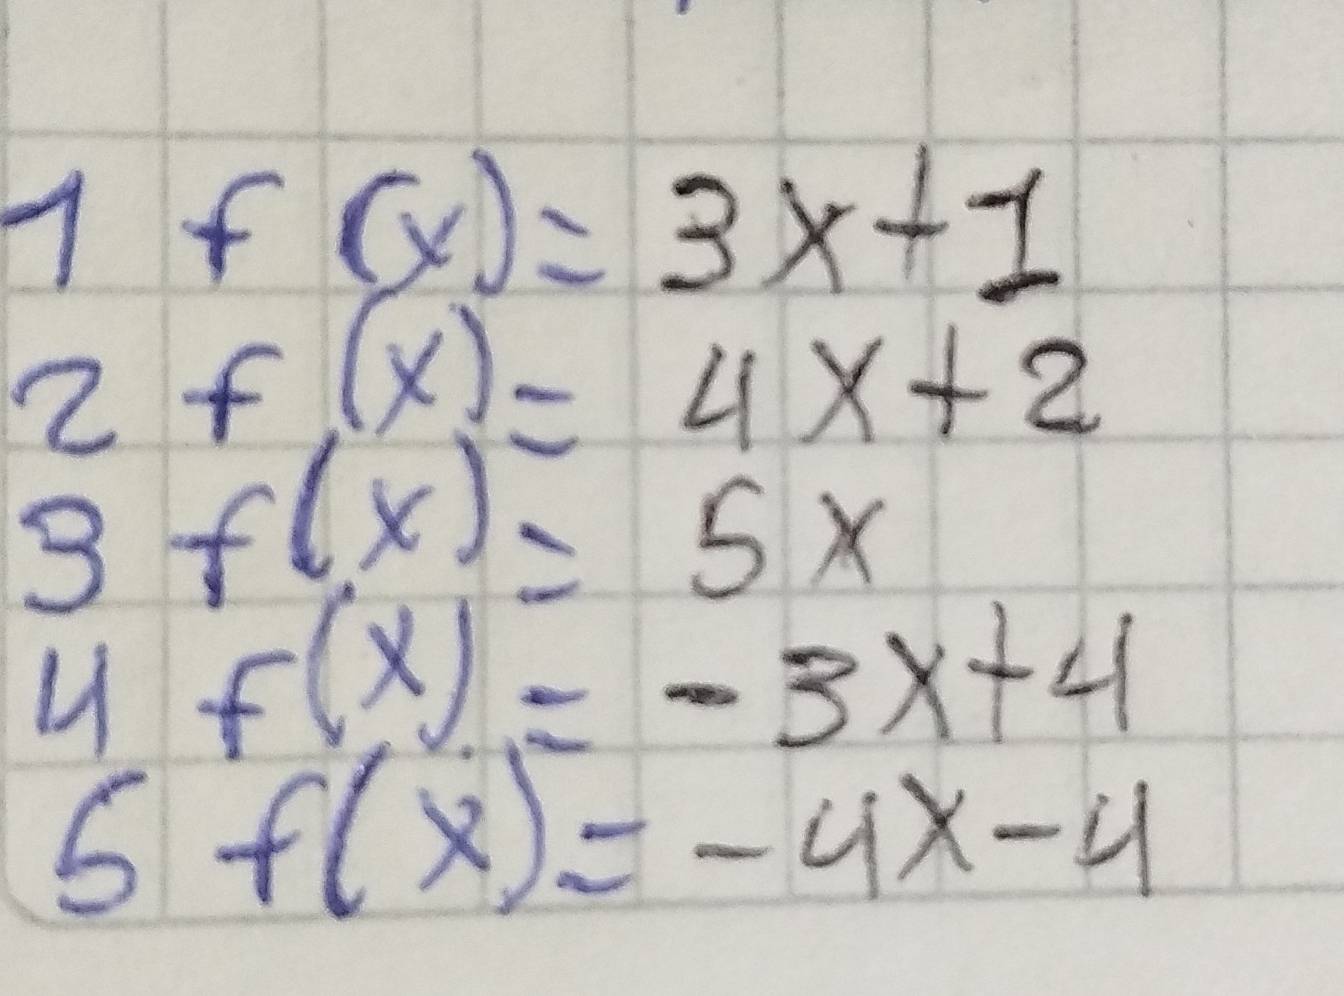 1 f(x)= 3x+1
2 f(x)= 4x+2
3 f(x)= 5x
4 f(x)= -3x+4
5 f(x)= -4x-4